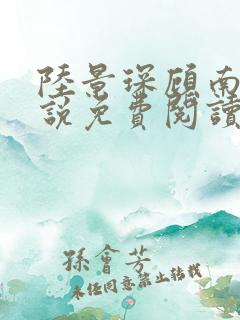 陸景琛顧南
說免費閱讀
孫會芳
未經同意禁止轉載